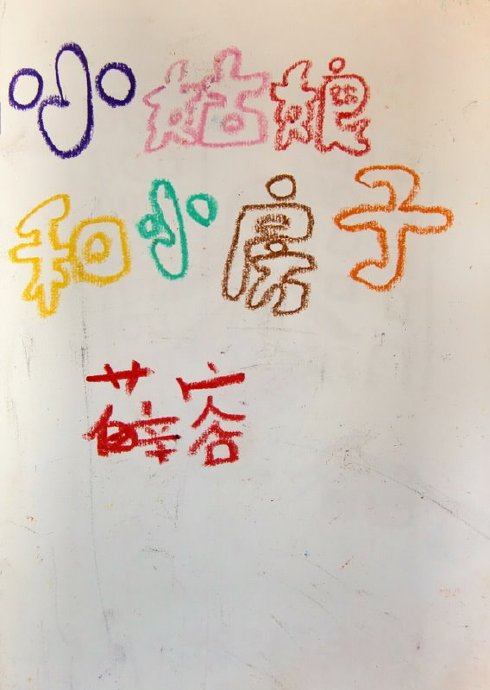 小姑娘
和小房子
薛容